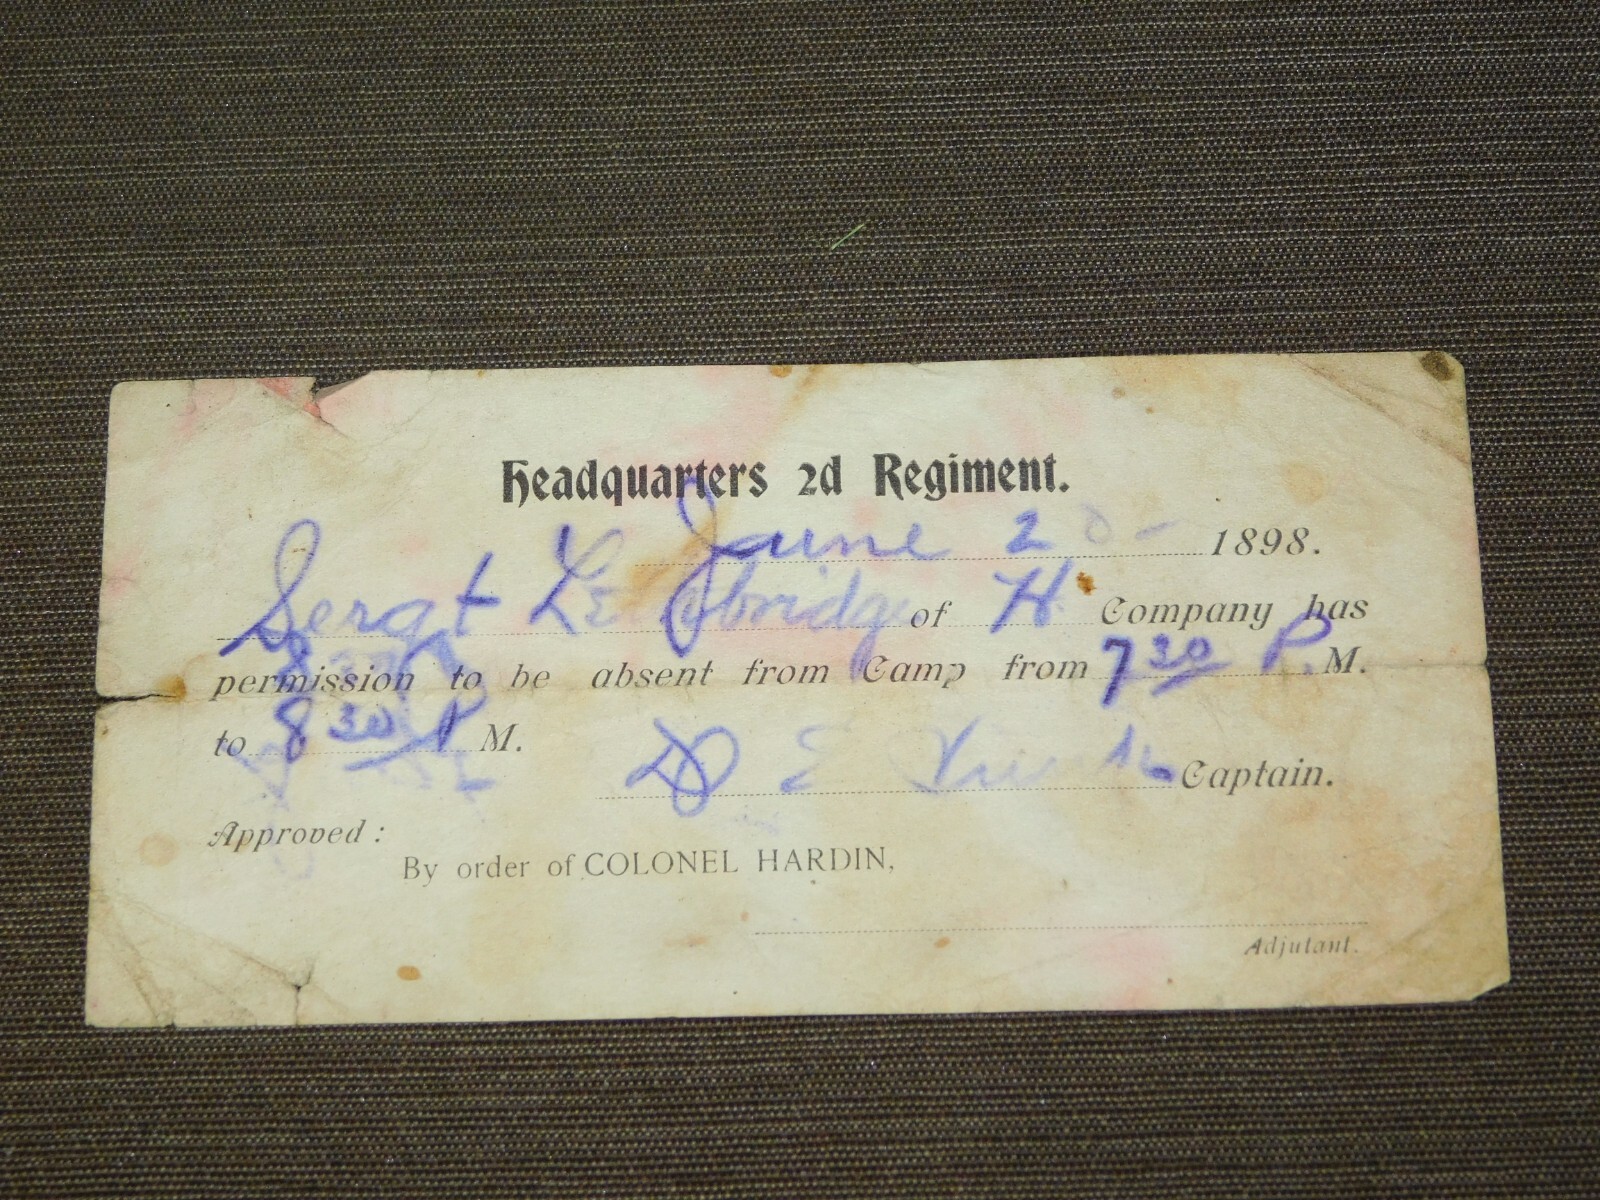 Headquarters 2d Regiment.
June 2 1898.
Sergt of H Company has
permission to be absent from Camp from 7 30 P. M.
to 8 30 P M.
D E Captain.
Approved:
By order of COLONEL HARDIN,
Adjutant.